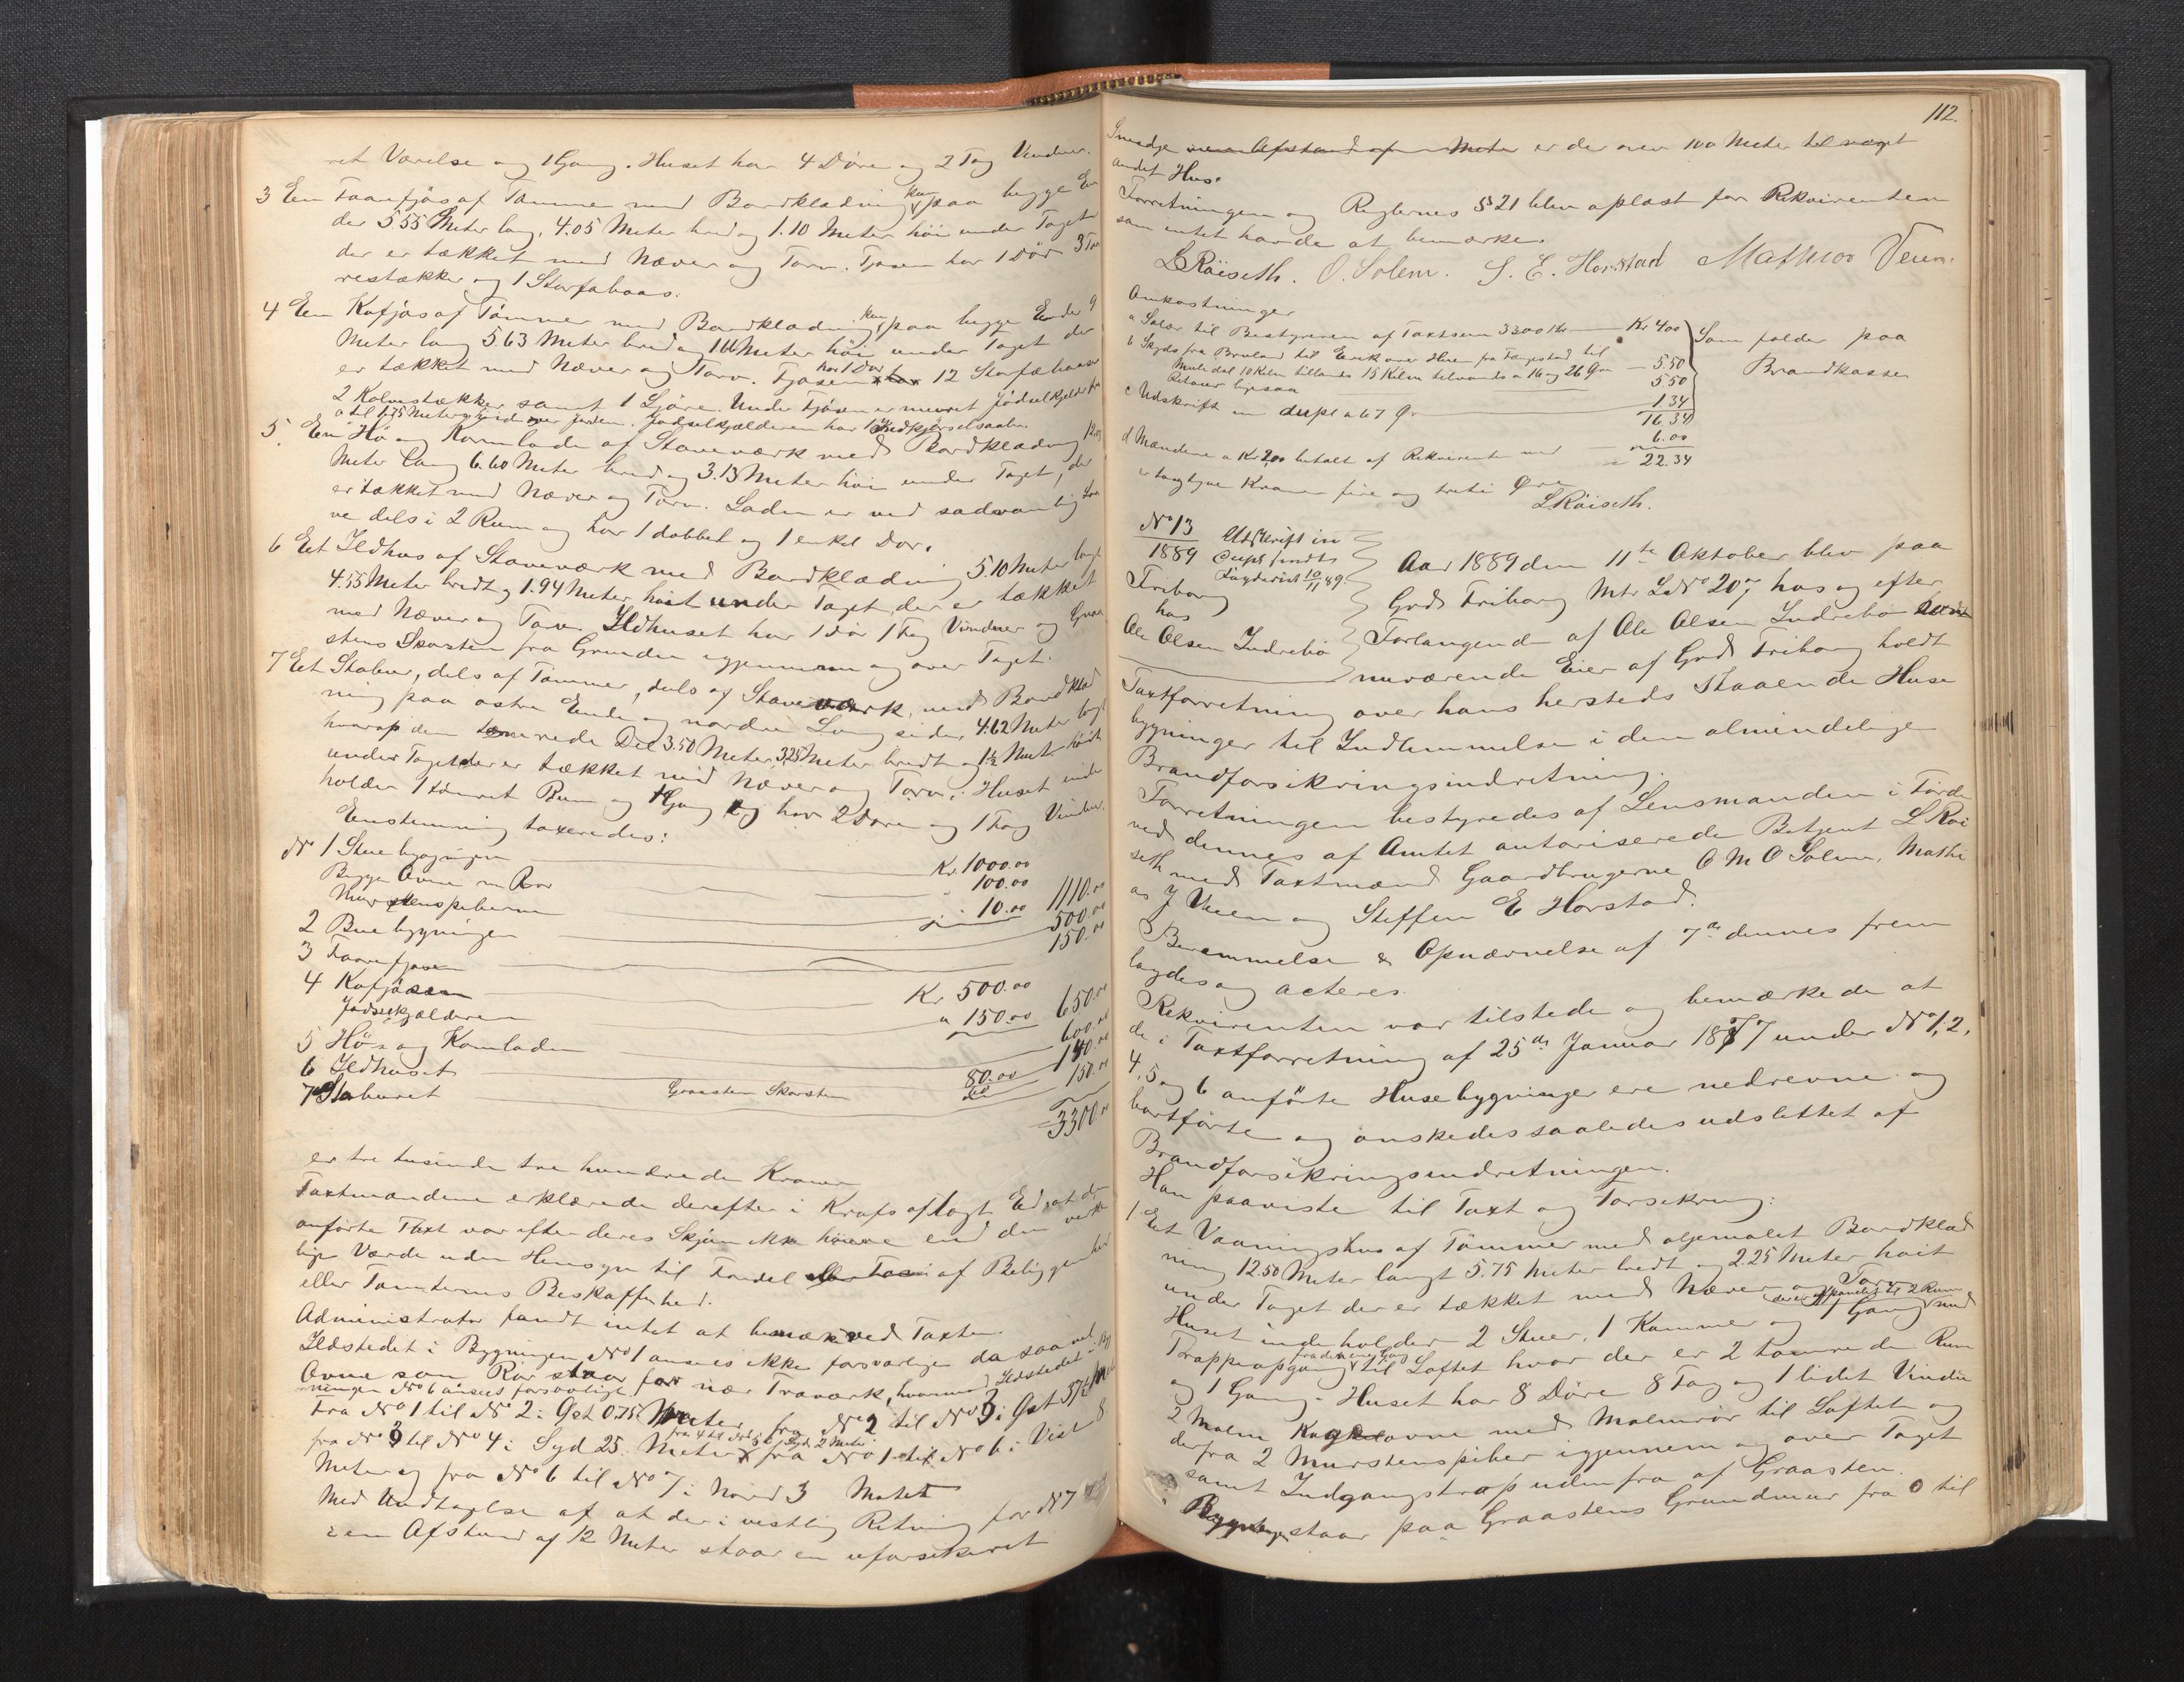 ret Værelse og 1 Gang. Huset har 4 Døre og 2 Fag Vinduer.
3 Een Faarefjøs af Tømmer med Bordklædning kun paa begge En
der 5.55 Meter lang, 4.05 Meter bred og 1.10 Meter høi under Taget
der er tækket med Næver og Torv. Fjøsen har 1 Dør 3 Faa
restækker og 1 Storfæbaas.
4 Een Kofjøs af Tømmer med Bordklædning kun paa begge Ender 9
Meter lang 5.63 Meter bred og 1.66 Meter høi under Taget der
er tækket med Næver og Torv. Fjøsen har 1 Dør 12 Storfæbaase
2 Kalvestækker samt 1 Gjøre. Under Fjøsen er muret Jødselkjelder fra
0 til 1.75 Meter over Jorden. Jødselkjælderen har 1 Indkjørselsaabn.
5. Een Hø og Kornlade af Staveværk med Bordklædning
Meter lang 6.60 Meter bred og 3.13 Meter høi under Taget, der
er tækket med Næver og Torv. Laden er ved sædvanlig Laa
ve delt i 2 Rum og har 1 dobbelt og 1 enkel Dør.
6 Eet Ildhus af Staveværk med Bordklædning 5.10 Meter langt
4.55 Meter bredt og 1.94 Meter høit under Taget, der er tækket
med Næver og Torv. Ildhuset har 1 Dør 1 Fag Vinduer og Graa
stens Skorsten fra Grunden igjennem og over Taget.
7 Eet Stabur, dels af Tømmer, dels af Staveværk, med Bordklæd
ning paa østre Ende og nordre Langside, 4.62 Meter langt
hvoraf den tømrede Del 3.50 Meter, 3.25 Meter bredt og 1½ Meter høit
under Taget der er tækket med Næver og Torv. Huset inde
holder 1 tømret Rum og 1 Gang og har 2 Døre og 1 Fag Vinduer.
Eenstemmig taxeredes:
No 1 Stuebygningen Kr. 1000.00
Begge Ovne m Rør " 100.00
Murstenspiberne " 10.00 1110.00
2 Buebygningen 500.00
3 Faarefjøsen 150.00
4 Kofjøsen Kr 500.00
Jødselkjælderen " 150.00 650.00
5 Hø- og Kornladen 600.00
6 Ildhuset 80.00 140.00
7 Staburet Graasten Skorsten 60 150.00
3300.00
er tre tusinde tre hundrede Kroner
Taxtmændene erklærede derefter i Kraft aflagt Ed, at den
anførte Taxt var efter deres Skjøn ikke høiere end den virke
lige Værde uden Hensyn til Fordel af Beliggenhed
eller Tomternes Beskaffenhed.
Administrator fandt intet at bemærke ved Taxten.
Ildstedet i Bygningen No 1 ansees ikke forsvarlige da saavel
Ovne som Rør staar for nær Træværk, hvorimod Ildstedet i Byg
ningen No 6 ansees forsvarligt.
Fra No 1 til No 2 i Øst 0.75 Meter, fra No 2 til No 3 i Øst 37½ Meter
fra No 3 til No 4 i Syd 25 Meter fra 4 til No 5 i Syd 2 Meter fra No 1 til No 6 i Vest 8
Meter og fra No 6 til No 7 i Nord 3 Meter
Med Undtagelse af at der i vestlig Retning for No 7
i en Afstand af 12 Meter staar en uforsikeret
112.
Smedje i en Afstand af Meter er der over 100 Meter til noget
andet Hus.
Forretningen og Reglernes § 21 blev oplæst for Rekvirenten
som intet havde at bemærke.
L Røiseth. O. Solem. S. E. Horstad Mathias Veien.
Omkostninger
a Salær til Bestyreren af Taxtsum 3300 Kr Kr 4 00
b Skyds fra Bruland til Erik over Huen fra Farsstad til
Muledal 10 Kilm tillands 15 Kilm tilvands a 16 og 26 Øre 5.50
Retour ligesaa 5.50
c Udskrift in dupl a 67 Ør 1 34
16.34
d Mændene a Kr 2,00 betalt af Rekvirent med 6.00
22.34
Som falder paa
Brandkassen
er tyvetyve Kroner fire og treti Øre
L Røiseth.
No 13
1889
Friborg
hos
Ole Olsen Indrebø
Utskrift in
dupl sendt
Fogderiet 10/11 89.
Aar 1889 den 11te Oktober blev paa
Grd Friborg Mtr LNo 207 hos og efter
Forlangende af Ole Olsen Indrebø
nuværende Eier af Grd Friborg holdt
Taxtforretning over hans hersteds staaende Huse
bygninger til Indlemmelse i den almindelige
Brandforsikringsindretning.
Forretningen bestyredes af Lensmanden i Førde
ved dennes af Amtet autoriserede Betjent L Røi
seth med Taxtmænd Gaardbrugerne O M O Solem, Mathi
as J Veien og Steffen E Horstad.
Berammelse & Opnævnelse af 7de dennes frem
lagdes og acteres.
Rekvirenten var tilstede og bemærkede at
de i Taxtforretning af 25de Januar 1877 under No 1, 2,
4, 5 og 6 anførte Husebygninger ere nedrevne og
bortførte og ønskedes saaledes udslettet af
Brandforsikringsindretningen.
Han paaviste til Taxt og Forsikring:
1 Eet Vaaningshus af Tømmer med oljemalet Bordklæd
ning 12.50 Meter langt 5.75 Meter bredt og 2.25 Meter høit
under Taget der er tækket med Næver og Torv
Huset indeholder 2 Stuer, 1 Kammer og 1 Gang der er afpanelet til 2 Rum med
Trappeopgang fra den ene Gang til Loftet hvor der er 2 tømrede Rum
og 1 Gang. Huset har 8 Døre 8 Fag og 1 lidet Vindu
2 Malm Kogeovne med Malmrør til Loftet og
derfra 2 Murstenspiber igjennem og over Taget
samt Indgangstrap udenfra af Graasten.
Bygningen staar paa Graastens Grundmur fra 0 til